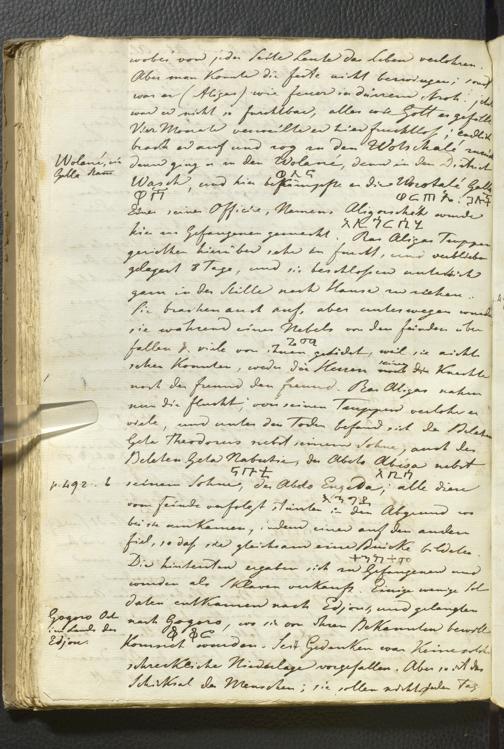 wobei von jeder Seite Leute das Leben verlohren.
Aber man konnte die feste nicht bezwingen; sonst
war er (Aligas) wie feuer in dürrem Stroh;
war er nicht so furchtbar, alles wie Gott es gefällt
Vier Monate verweilte er hier furchtlos; endlich
brach er auf und zog zu den Wotschalé
dann ging er in den Wolané, dann in den District
Wolané, ein
Galla Stamm
Wasch, und hier bekämpfte er die Worotalé Galla
ወላኔ
Einer seiner Officire, Namens Aligorschéh wurde
hier im Gefangenen gemacht. Ras Aligas Truppen
geriethen hierüber sehr in furcht, und verblieben
gelagert 8 Tage, und sie beschlossen
ganz in der Stille nach Hause zu ziehen.
Sie brachen auch auf, aber unterwegen wurden
sie während eines Nebels von den feinden über
fallen & viele von ihnen getödet, weil sie nicht
sehen konnten, weder die Herren seine Knechte
noch der freund den freund. Ras Aligas nahm
nun die flucht; von seinen Truppen verlohr er
viele, und unter den Toden befand sich der Beleten
Geta Theodorus nebst seinem Sohne, auch der
Beleten Geta Nabutie, der Abeto Abisa nebst
p. 492. b
seinem Sohne, der Abeto Engeda; alle diese
vom feinde verfolgt stürzten in den Abgrund wo
bei sie umkamen, indem einer auf den andern
fiel, so daß sie gleichsam eine Brücke bildeten.
Die hintersten ergaben sich zu Gefangenen und
wurden als Sklaven verkauft. Einige wenige Sol
daten entkamen nach Edjou, und gelangten
Gogoro
im Lande der
Edjou.
nach Gogoro, wo sie von Ihren Bekannten bewill
kommet wurden. Seit Gedenken war keine solch
schreckliche Niederlage vorgefallen. Aber so ist das
Schicksal der Menschen; sie sollen nicht jeden Tag